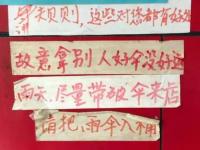 贝贝则,这些对您都有好处
故意拿别人好伞没好运
雨天,尽量带破伞来店
请把雨伞入桶